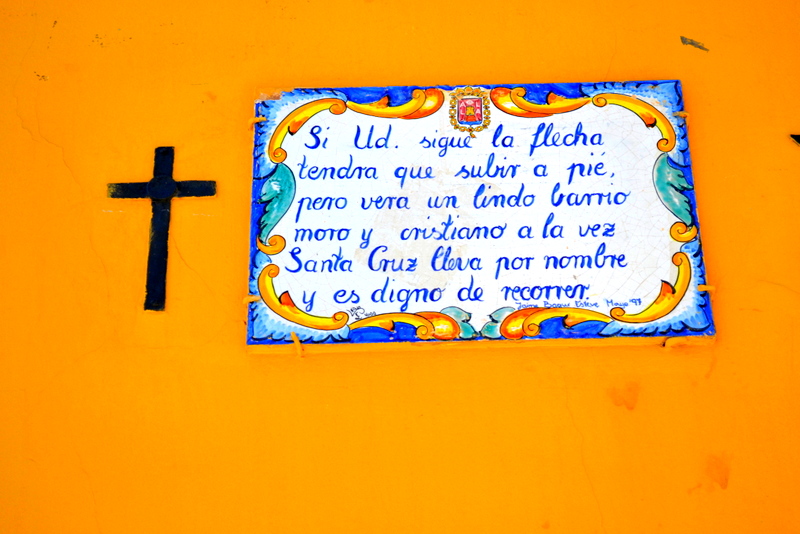 Si Ud. sigue la flecha
tendra que subir a pié,
pero vera un lindo barrio
moro y cristiano a la vez
Santa Cruz lleva por nombre
y es digno de recorrer
Jaime Boque Esteve Mayo '97